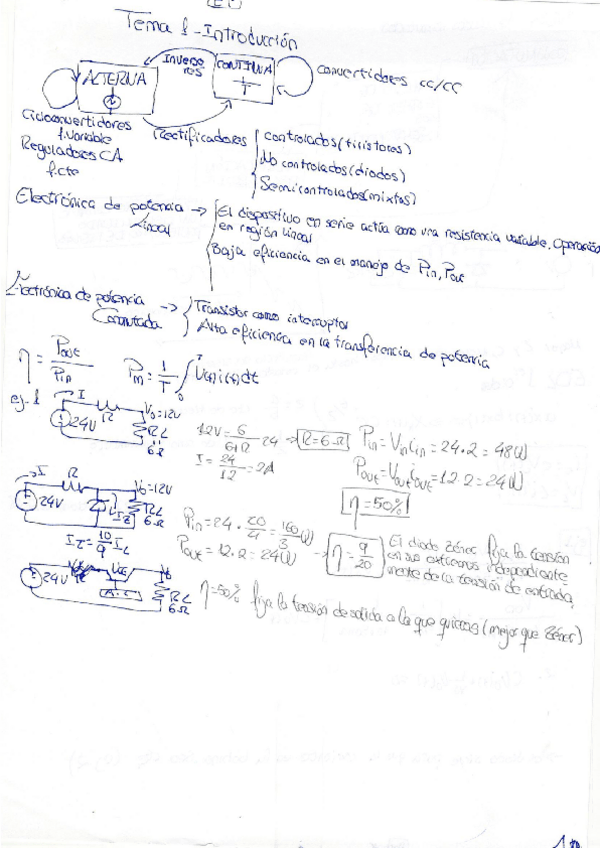 Tema 1 - Introducción
ALTERNA
Inversores
CONTINUA
Convertidores CC/CC
Cicloconvertidores
f. variable
Reguladores CA
f. cte
Rectificadores
Controlados (tiristores)
No controlados (diodos)
Semicontrolados (mixtos)
Electrónica de potencia → El dispositivo en serie actúa como una resistencia variable. Operación
Lineal
en región lineal
Baja eficiencia en el manejo de Pin, Pout
Electrónica de potencia → Transistor como interruptor
Conmutada
Alta eficiencia en la transferencia de potencia
η = Pout / Pin
Pm = 1/T ∫ V(t) i(t) dt
ej. 1
I
R
Vo=12V
24V
RL
6Ω
12V = 6/6+R 24 → R=6Ω
I = 24/12 = 2A
Pin = Vin iin = 24·2 = 48W
Pout = Vout iout = 12·2 = 24W
η=50%
I
R
Vo=12V
24V
Iz
RL
6Ω
Iz = 10/9 IL
Pout = 12·2 = 24(W)
η = 9/20
El diodo zéner fija la tensión
en sus extremos independiente
mente de la tensión de entrada.
24V
Vo
RL
6Ω
η=50% fija la tensión de salida a la que quieras (mejor que zéner)